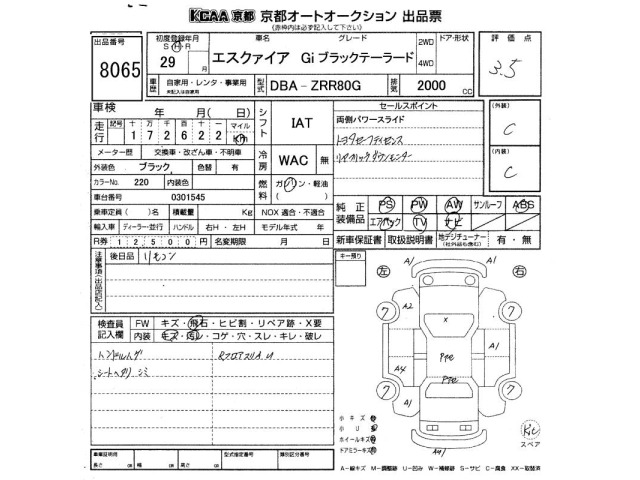 KCAA 京都 京都オートオークション 出品票
(赤枠内は必ず記入して下さい)
出品番号
8065
初度登録年月
S H R
29 月
車名 グレード
エスクァイア Gi ブラックテーラード
2WD
4WD
ドア・形状
車歴
自家用・レンタ・事業用
型式
DBA - ZRR80G
排気
2000 CC
評価点
3.5
車検 年 月 (日)
走行
記号 十 万 千 百 十 一 マイル
1 7 2 6 2 2 Km
メーター歴 交換車・改ざん車・不明車
外装色 ブラック 色替 有
カラーNo. 220 内装色
車台番号 0301545
乗車定員 ( )名 積載量 Kg
輸入車 ディーラー・並行 ハンドル 右H・左H
R券 1 2 5 0 0 円 名変期限 月 日
シフト
IAT
冷房
WAC 無
燃料
ガソリン・軽油
( )
NOX 適合・不適合
モデル年式 年
セールスポイント
両側パワースライド
トヨタセーフティセンス
(外装)
C
(内装)
C
純正装備品
PS PW AW サンルーフ ABS
エアバック TV ナビ
新車保証書 取扱説明書 地デジチューナー 有・無
注意事項(出品店記入)
後日品 リモコン
キー残り
検査員記入欄
FW キズ・飛石・ヒビ割・リペア跡・X要
内装 キズ・汚レ・コゲ・穴・スレ・キレ・破レ
ハンドルハゲ
シートヘタリ シミ
左 右
7 7
A2 A1
X
A1 Pτε A1
A4
Pτε
7 7
A1 A1
小キズ
小リ
ホイールキズ
ドアミラーキズ
スペア
車輌証明用
長さ cm 幅 cm 高さ cm
型式指定番号
類別区分番号
A-線キズ M-調整跡 U-凹み W-補修跡 S-サビ C-腐食 XX-取替済